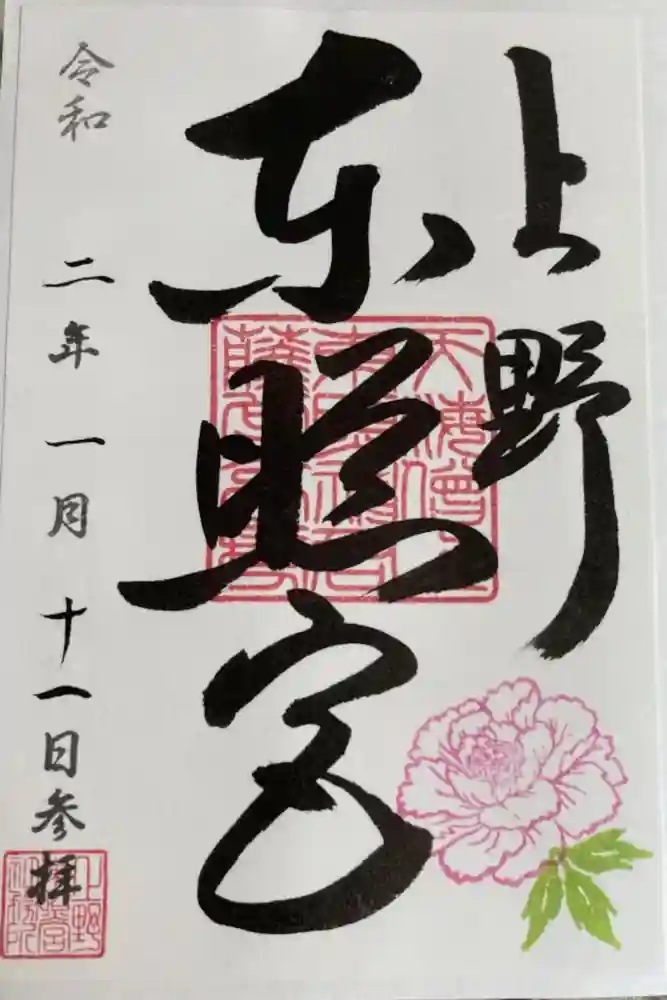 上野
東照宮
令和二年一月十一日参拝